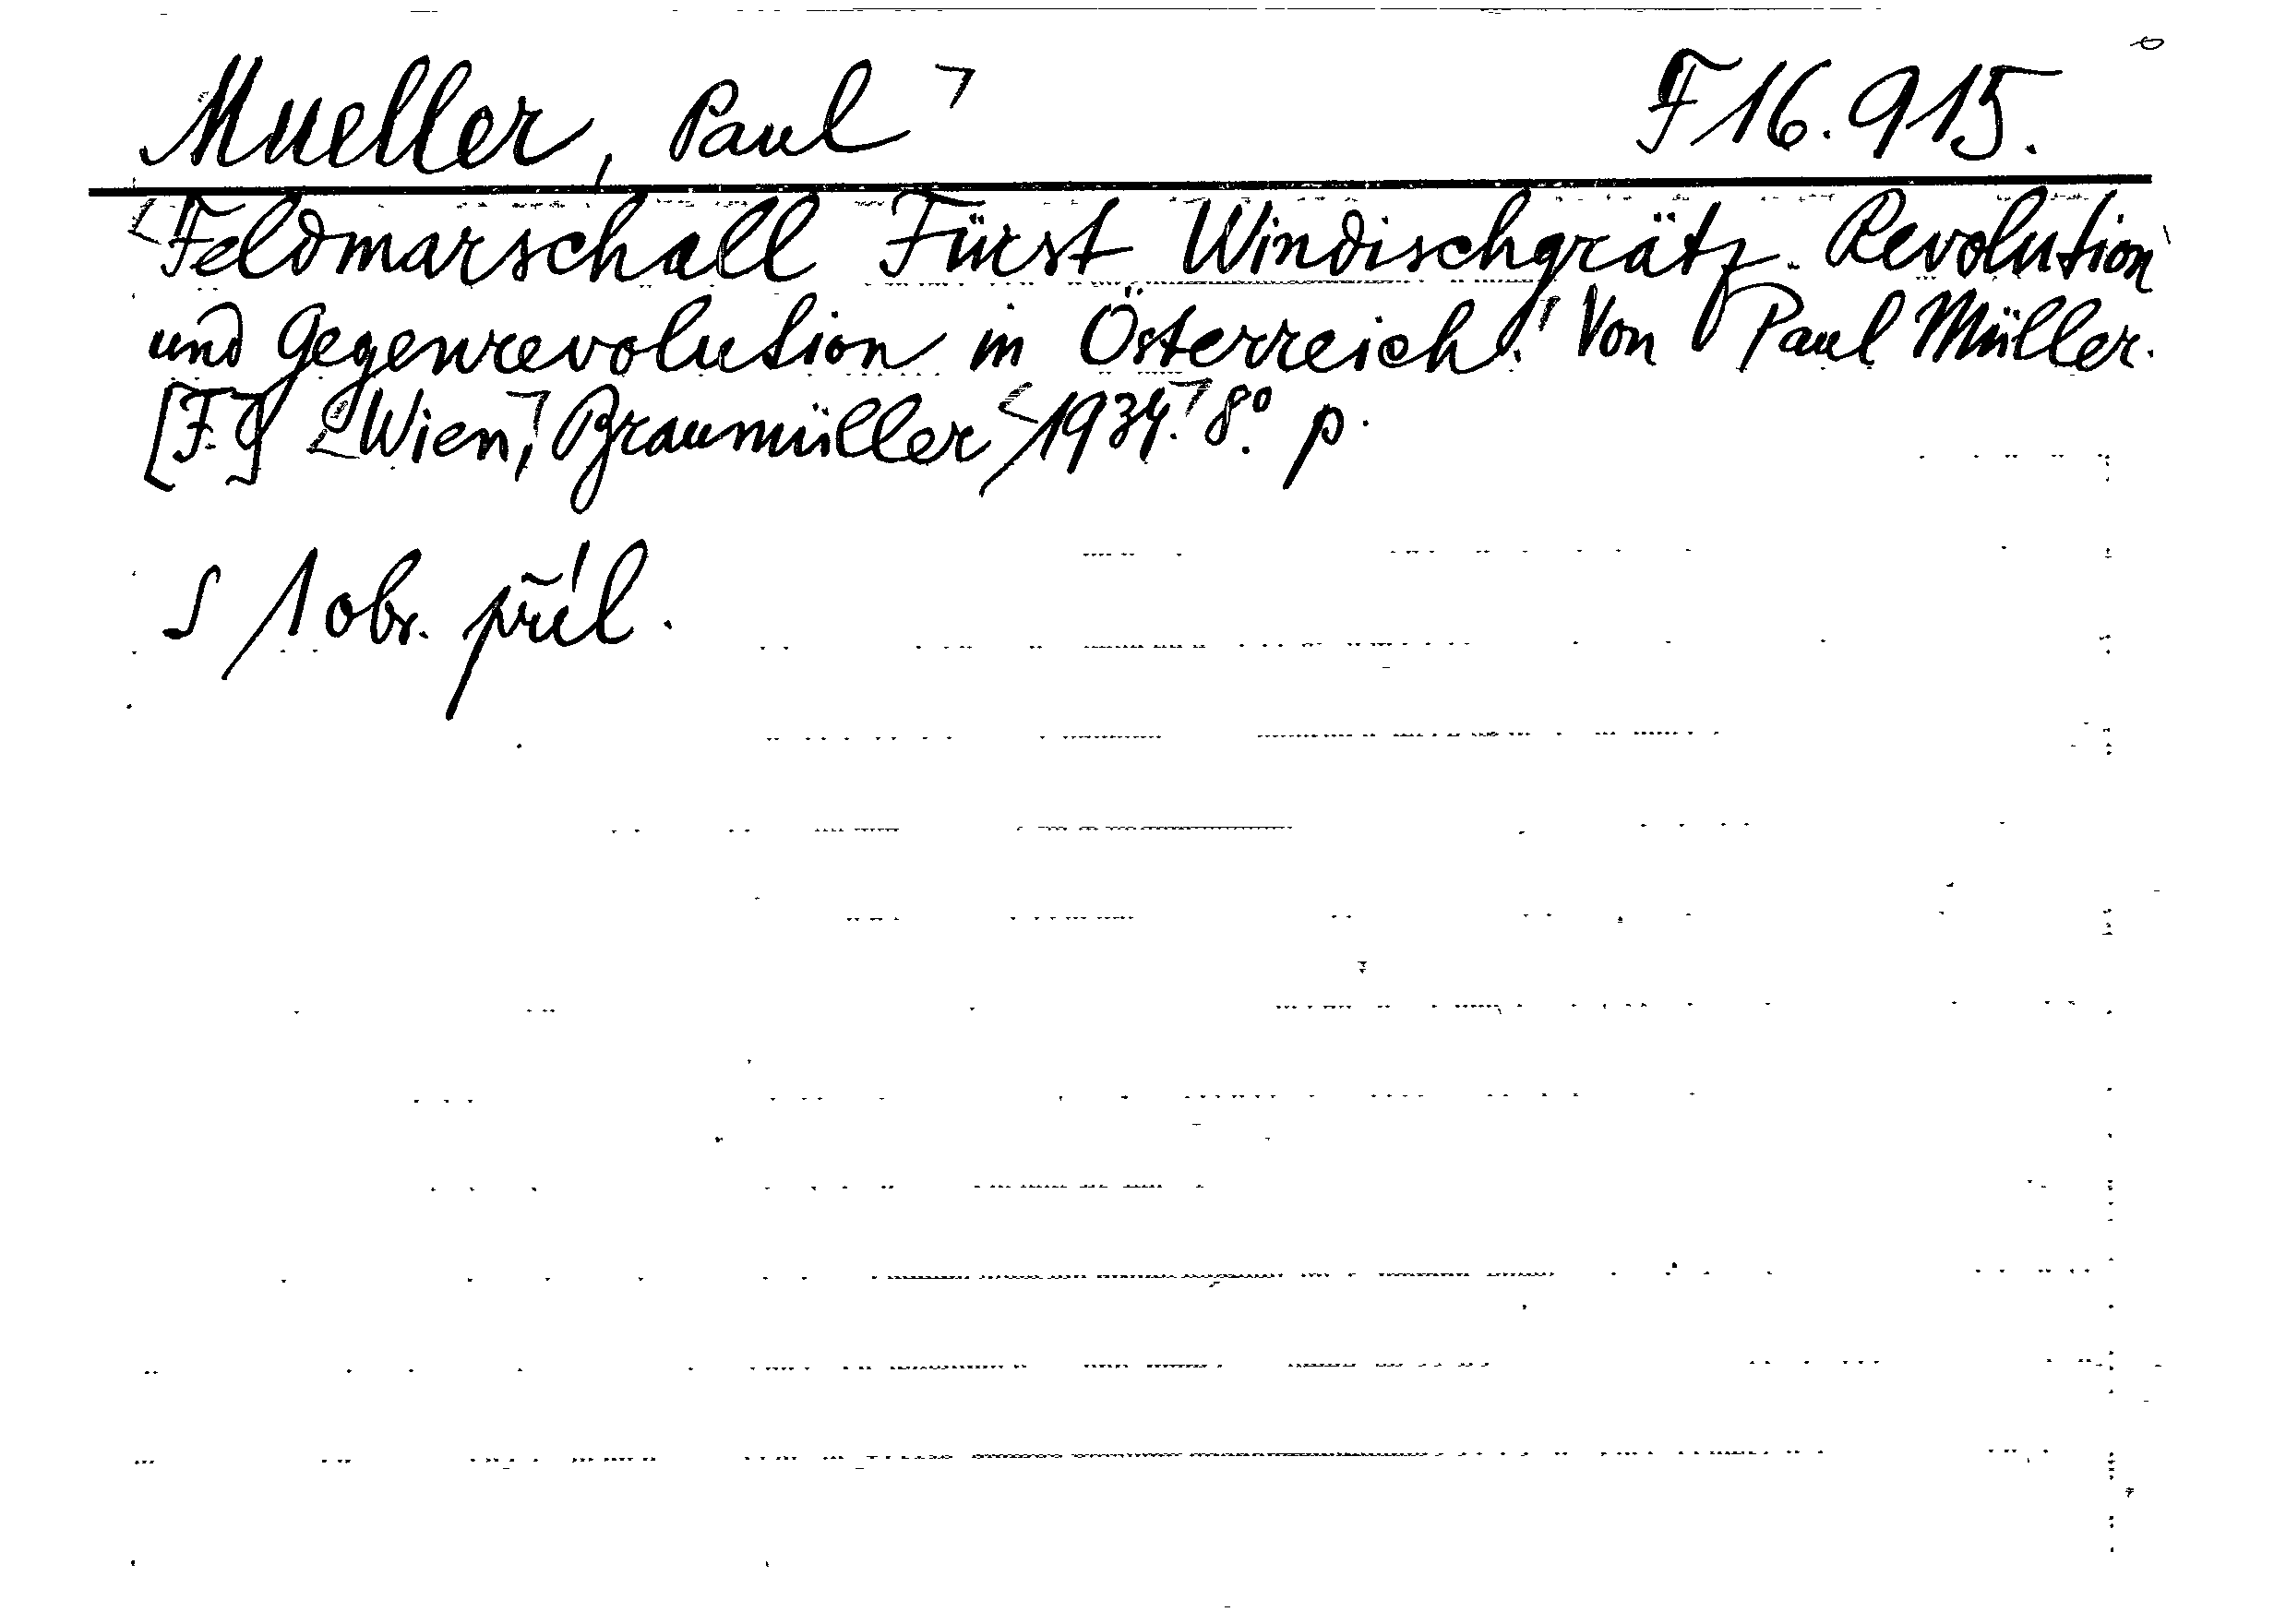 Mueller, Paul F 16.915.
Feldmarschall Fürst Windischgrätz. Revolution
und Gegenrevolution in Österreich. Von Paul Müller.
[F.] Wien, Braumüller 1934. 8° p.
S 1 obr. příl.